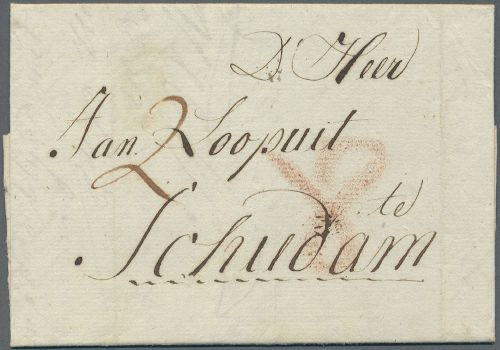 D' Heer
Jan Loopuit
2
te
Schiedam